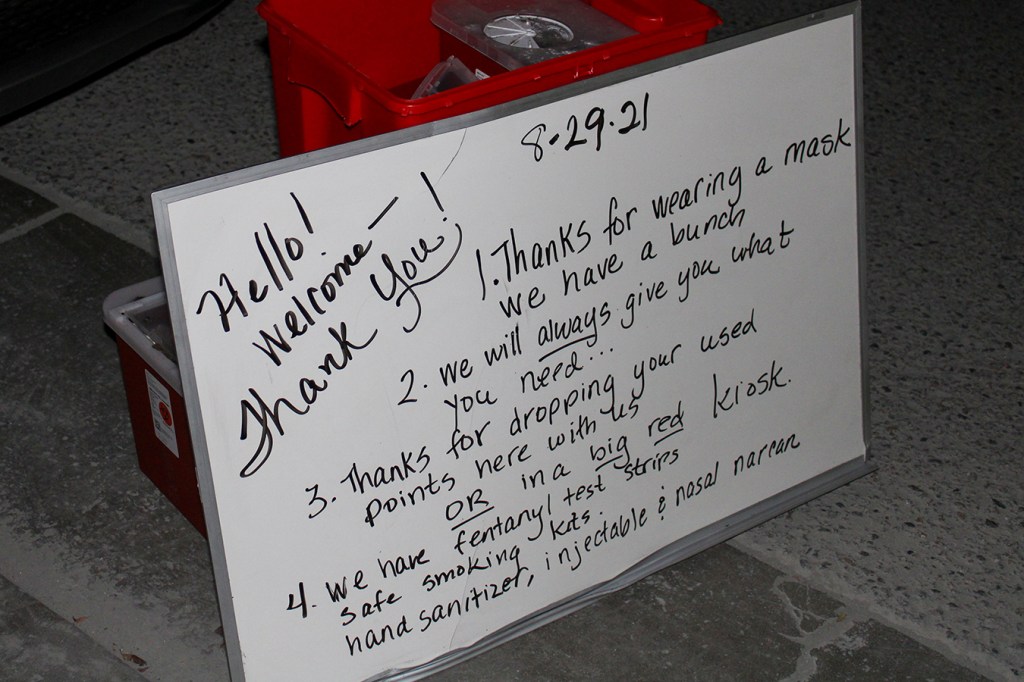 8-29-21
Hello!
Welcome—
Thank you!
1. Thanks for wearing a mask
we have a bunch
2. we will always give you what
you need...
3. Thanks for dropping your used
points here with us
OR in a big red kiosk.
4. we have fentanyl test strips
safe smoking kits.
hand sanitizer, injectable & nasal narcan